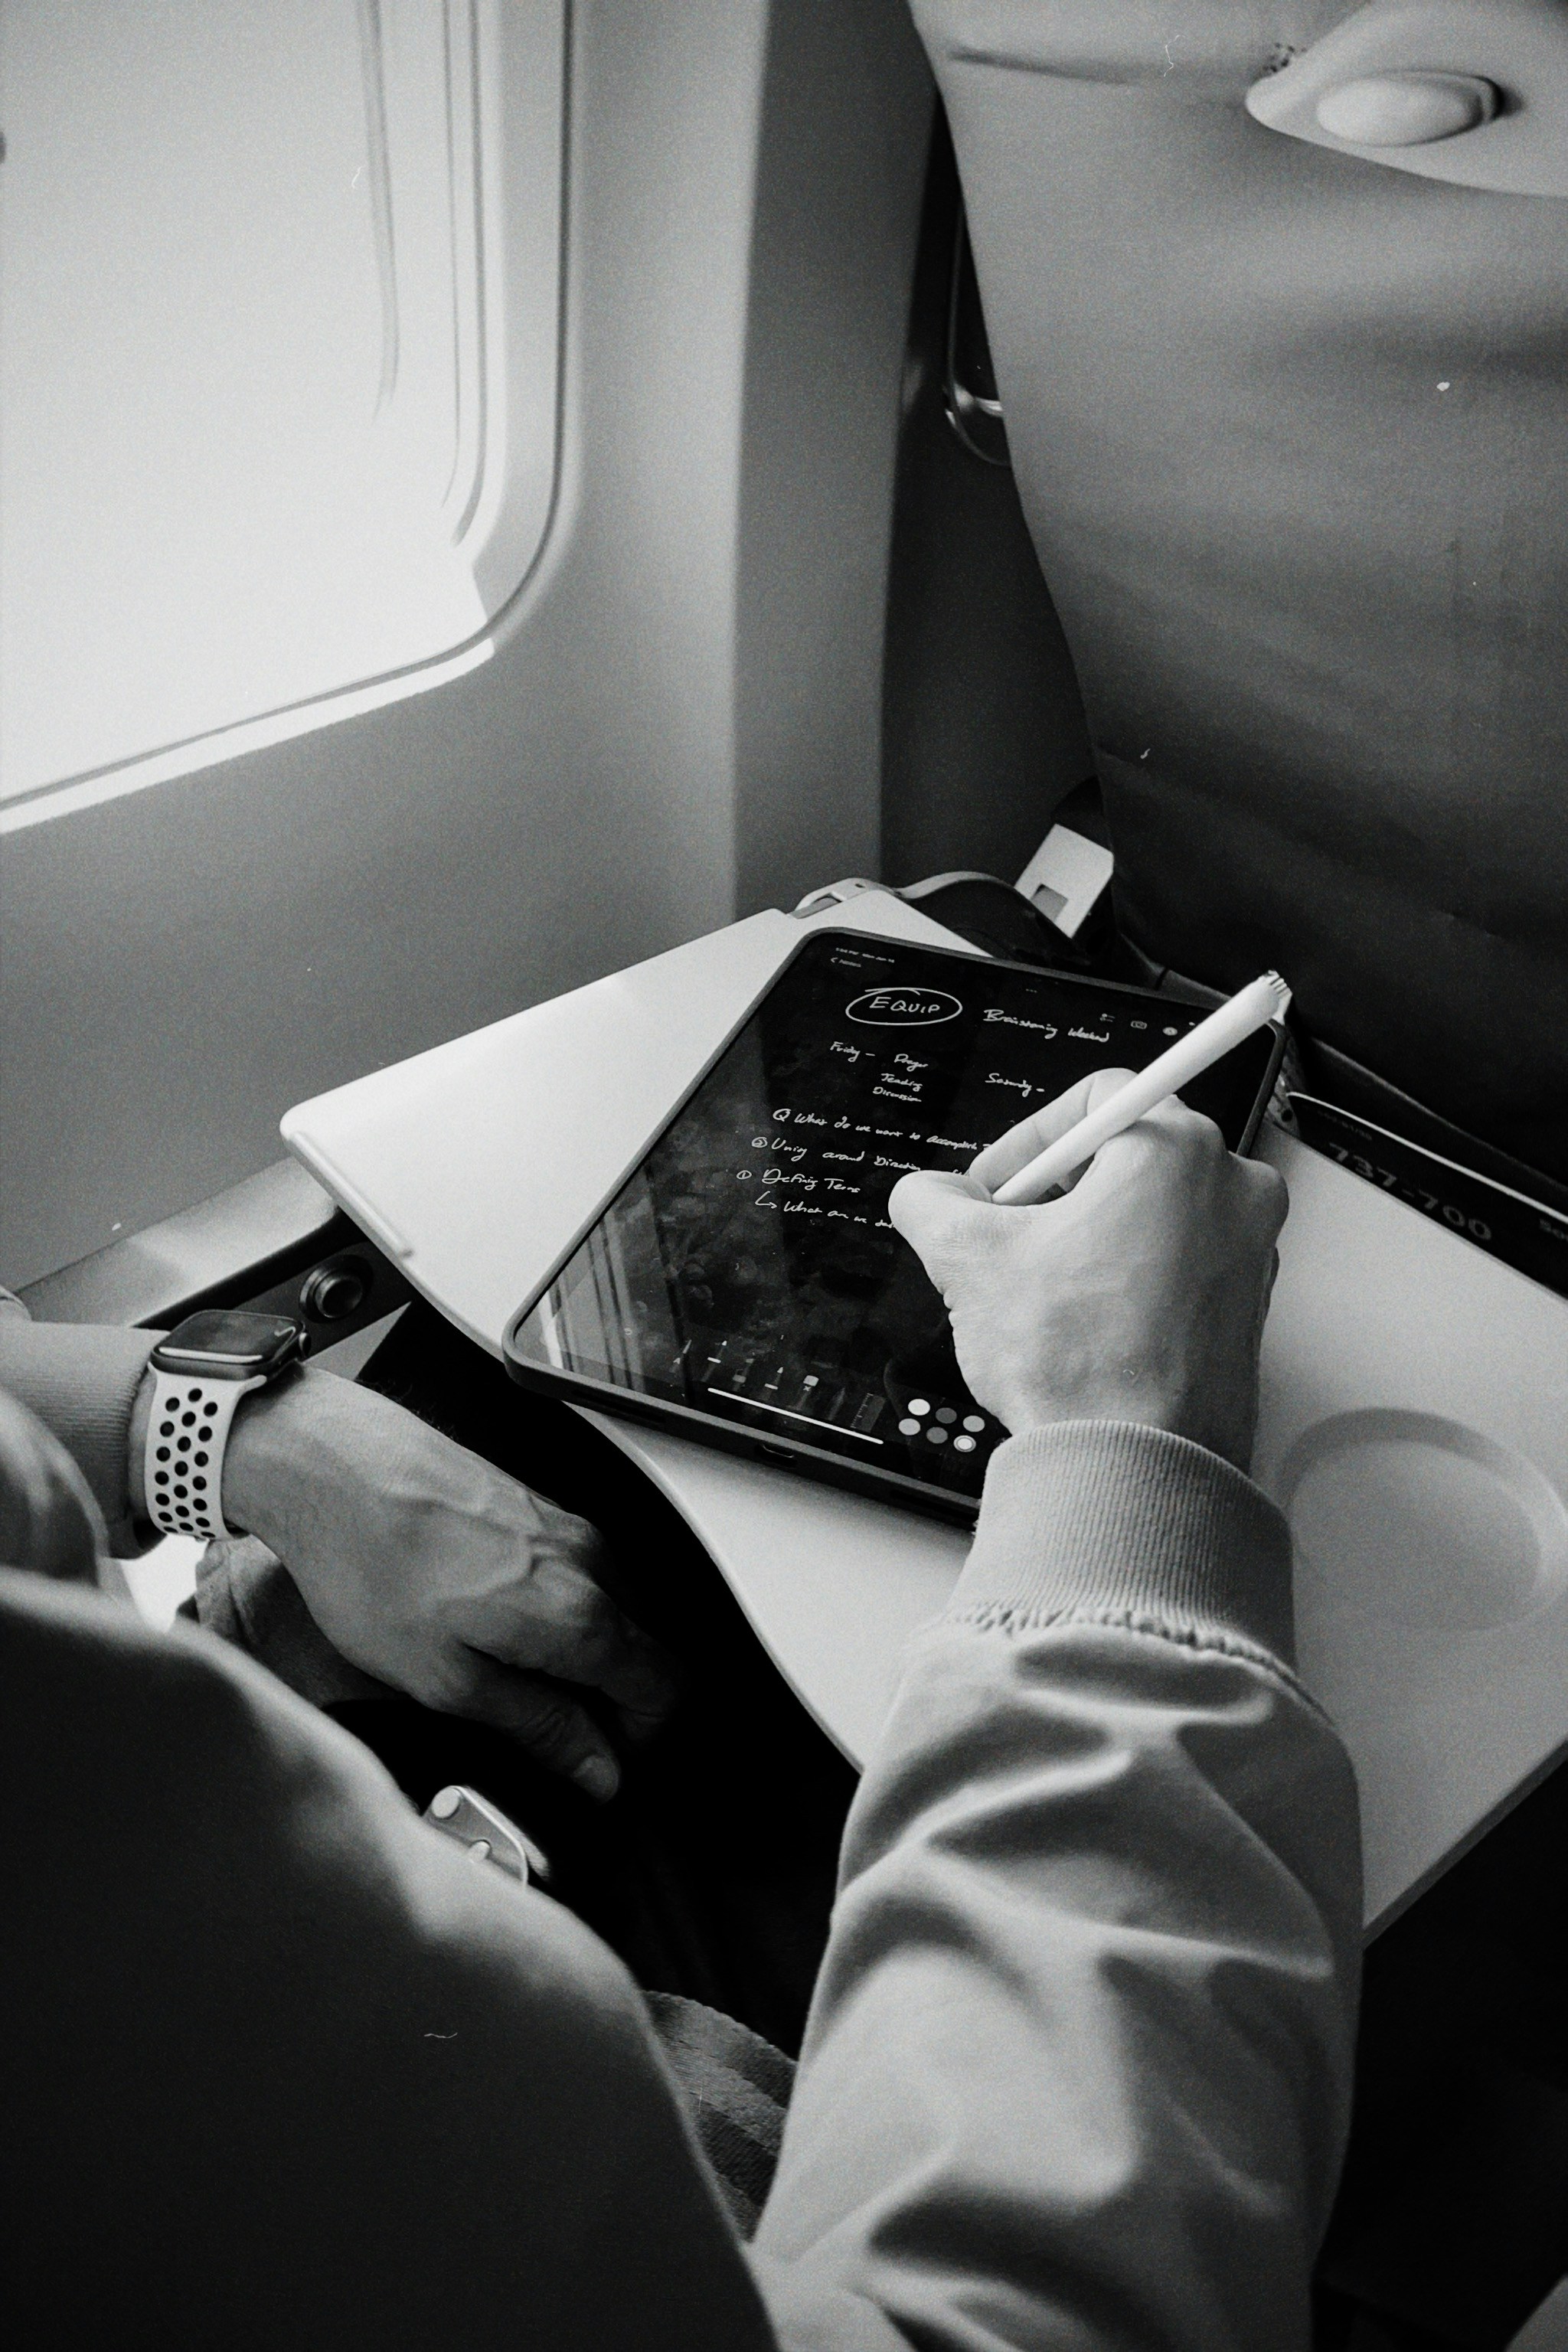 Notes
EQUIP Brainstorming Weekend
Friday - Prayer Saturday -
Teaching
Discussion
Q What do we want to accomplish
② Unity around Direction
① Defining Terms
↳ What are we
737-700